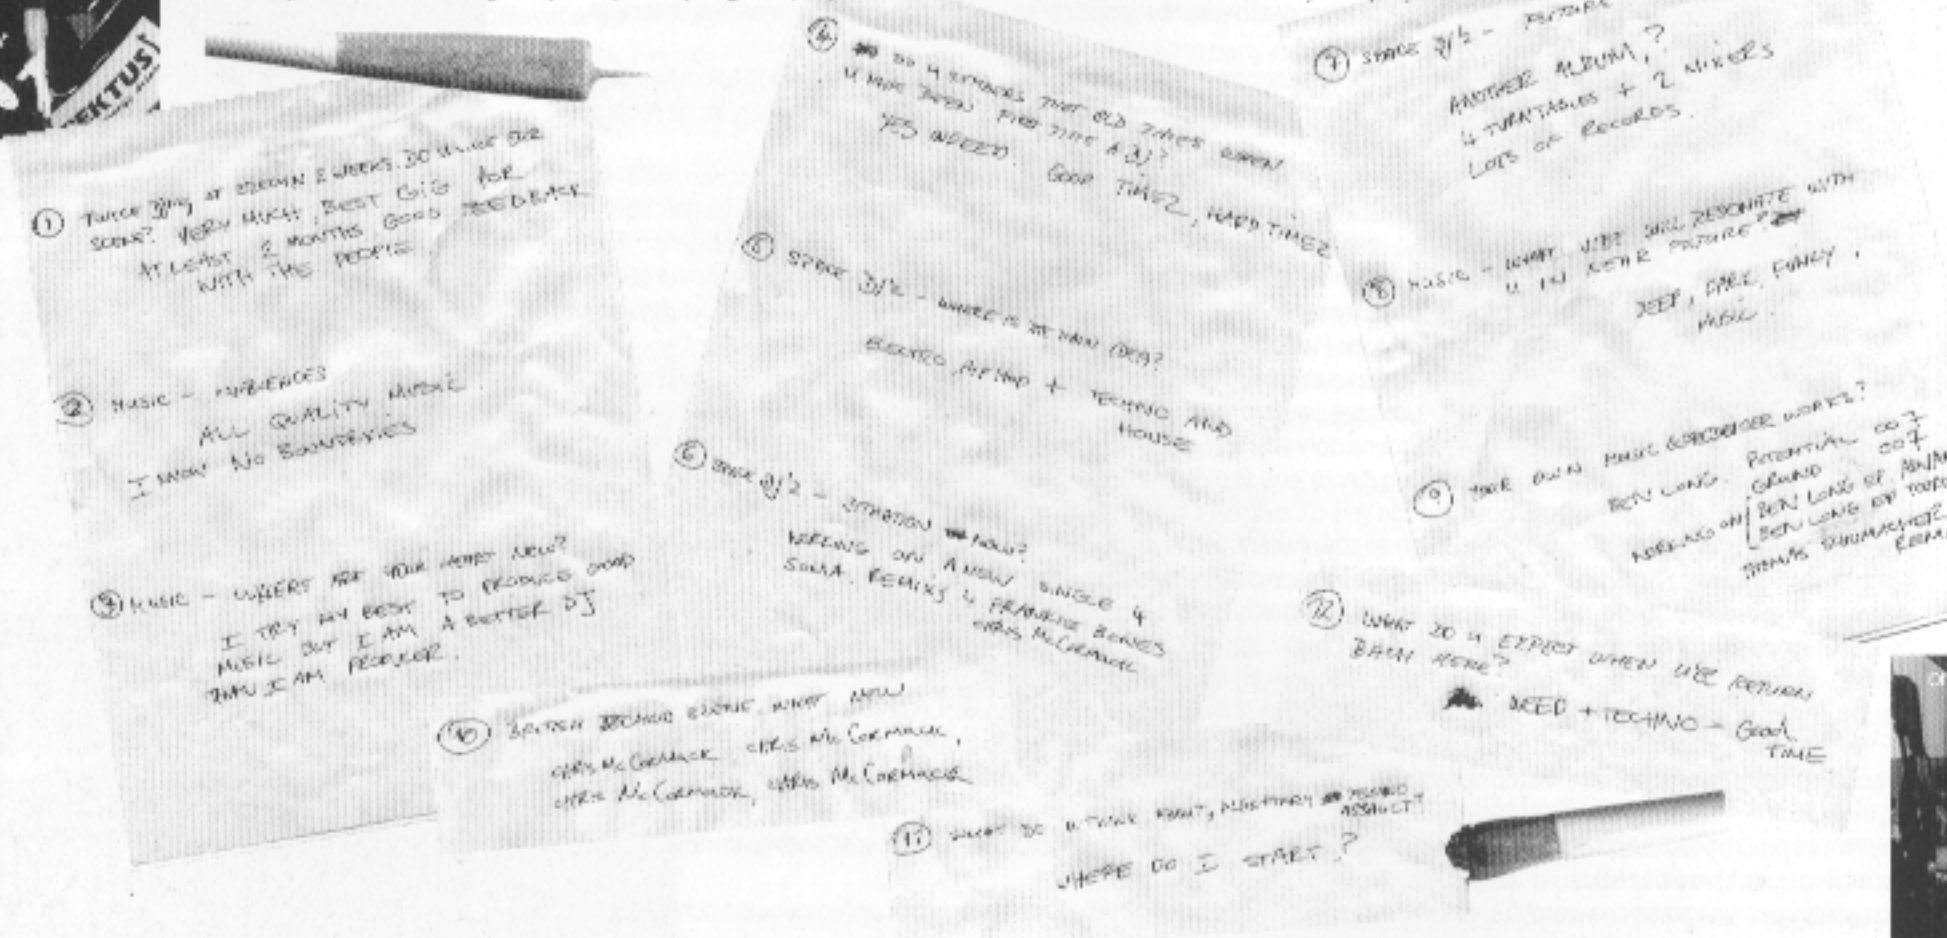 EKTUS
① TWICE DJing AT 2 WEEKS. DO U LIKE OUR
SCENE? VERY MUCH, BEST GIG FOR
AT LEAST 2 MONTHS GOOD FEEDBACK
WITH THE PEOPLE.
② MUSIC -
ALL QUALITY MUSIC
I KNOW NO BOUNDARIES
MUSIC - WHERE ARE YOUR NOW?
I TRY MY BEST TO PRODUCE GOOD
MUSIC BUT I AM A BETTER DJ
THAN I AM PRODUCER.
④ DO U THAT OLD TIMES WHEN
U HAVE BEEN FIRST TIME A DJ?
YES INDEED. GOOD TIMEZ, HARD TIMEZ
⑤ SPACE DJ'Z - WHERE IS MAIN IDEA?
ELECTRO HIPHOP + TECHNO AND
HOUSE
⑥ SPACE DJ'Z - SITUATION NOW?
WORKING ON A NEW SINGLE 4
SOMA. REMIXS 4 FRANKIE BONES
CHRIS McCORMACK
⑦ SPACE DJ'Z - FUTURE
ANOTHER ALBUM,?
4 TURNTABLES + 2 MIXERS
LOTS OF RECORDS.
⑧ MUSIC - WHAT VIBE WILL RESONATE WITH
U IN NEAR FUTURE?
DEEP, DARK, FUNKY,
MUSIC.
⑨ YOUR OWN MUSIC WORKS?
BEN LONG POTENTIAL 007
GROUND 007
WORKING ON BEN LONG EP,
BEN LONG EP
THOMAS SCHUMACHER
⑩ BRITISH TECHNO SCENE, WHAT NOW
CHRIS McCORMACK CHRIS McCORMACK,
CHRIS McCORMACK, CHRIS McCORMACK
⑪ WHAT DO U THINK ABOUT, TECHNO
ASSAULT?
WHERE DO I START.?
⑫ WHAT DO U EXPECT WHEN RETURN
BACK HERE?
DEEP + TECHNO - Good
TIME